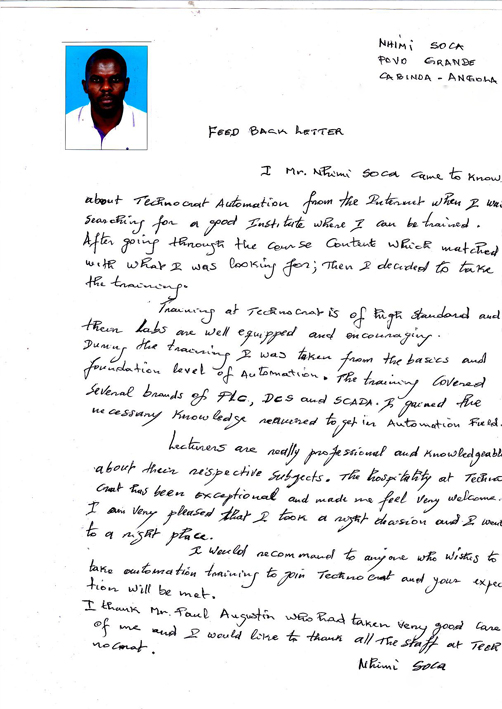 NHIMI SOCA
POVO GRANDE
CABINDA - ANGOLA
FEED BACK LETTER
I Mr. Nhimi SOCA came to know
about Technocrat Automation from the Internet when I was
searching for a good Institute where I can be trained.
After going through the course content which matched
with what I was looking for; Then I decided to take
the training.
Training at Technocrat is of high standard and
their Labs are well equipped and encouraging.
During the training I was taken from the basics and
foundation level of Automation. The training covered
several brands of PLC, DCS and SCADA. I gained the
necessary knowledge required to get in Automation Field.
Lecturers are really professional and knowledgeable
about their respective subjects. The hospitality at Techno
crat has been exceptional and made me feel very welcome.
I am very pleased that I took a right decision and I went
to a right place.
I would recommand to anyone who wishes to
take automation training to join Technocrat and your expec
tion will be met.
I thank Mr. Paul Augustin who had taken very good care
of me and I would like to thank all The staff at Tech
nocrat.
Nhimi SOCA